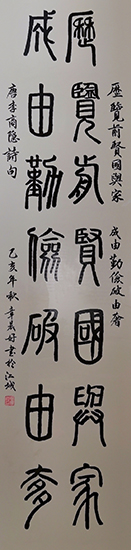 歷覽前賢國與家
成由勤儉破由奢
歷覽前賢國與家 成由勤儉破由奢
唐李商隐詩句
己亥年秋李義好書於江城